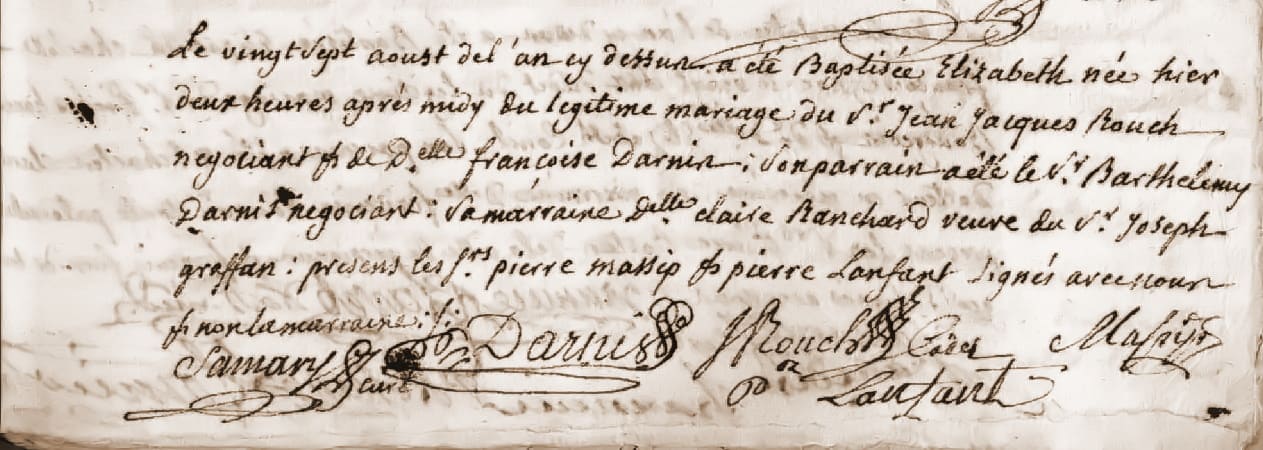 Le vingt sept aoust de l'an cy dessus a été Baptisée Elizabeth née hier
deux heures aprés midy du legitime mariage du Sr. Jean Jacques Rouch
negociant & de Delle françoise Darnis : son parrain a été le Sr. Barthelemy
Darnis negociant : sa marraine Delle claire Ranchard veuve du Sr. Joseph
graffan : presens les Srs pierre massip & pierre Lanfant signés avec nous
& non la marraine :/:
Samary curé Darnis JRouch Massip
Lanfant